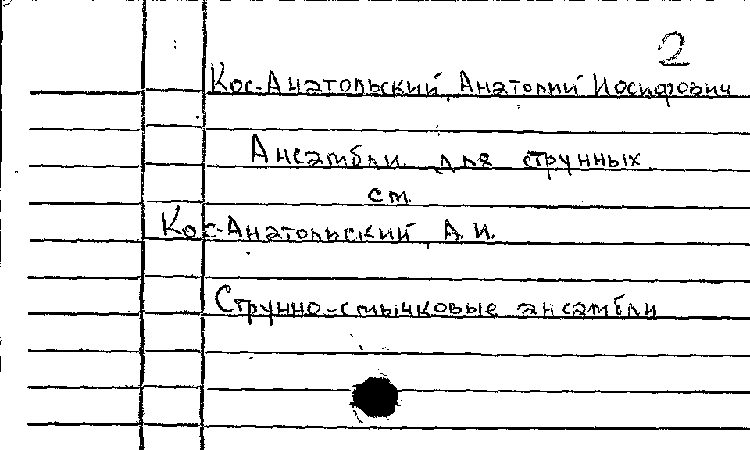 2
Кос-Анатольский, Анатолий Иосифович
Ансамбли для струнных
см.
Кос-Анатольский, А.И.
Струнно-смычковые ансамбли